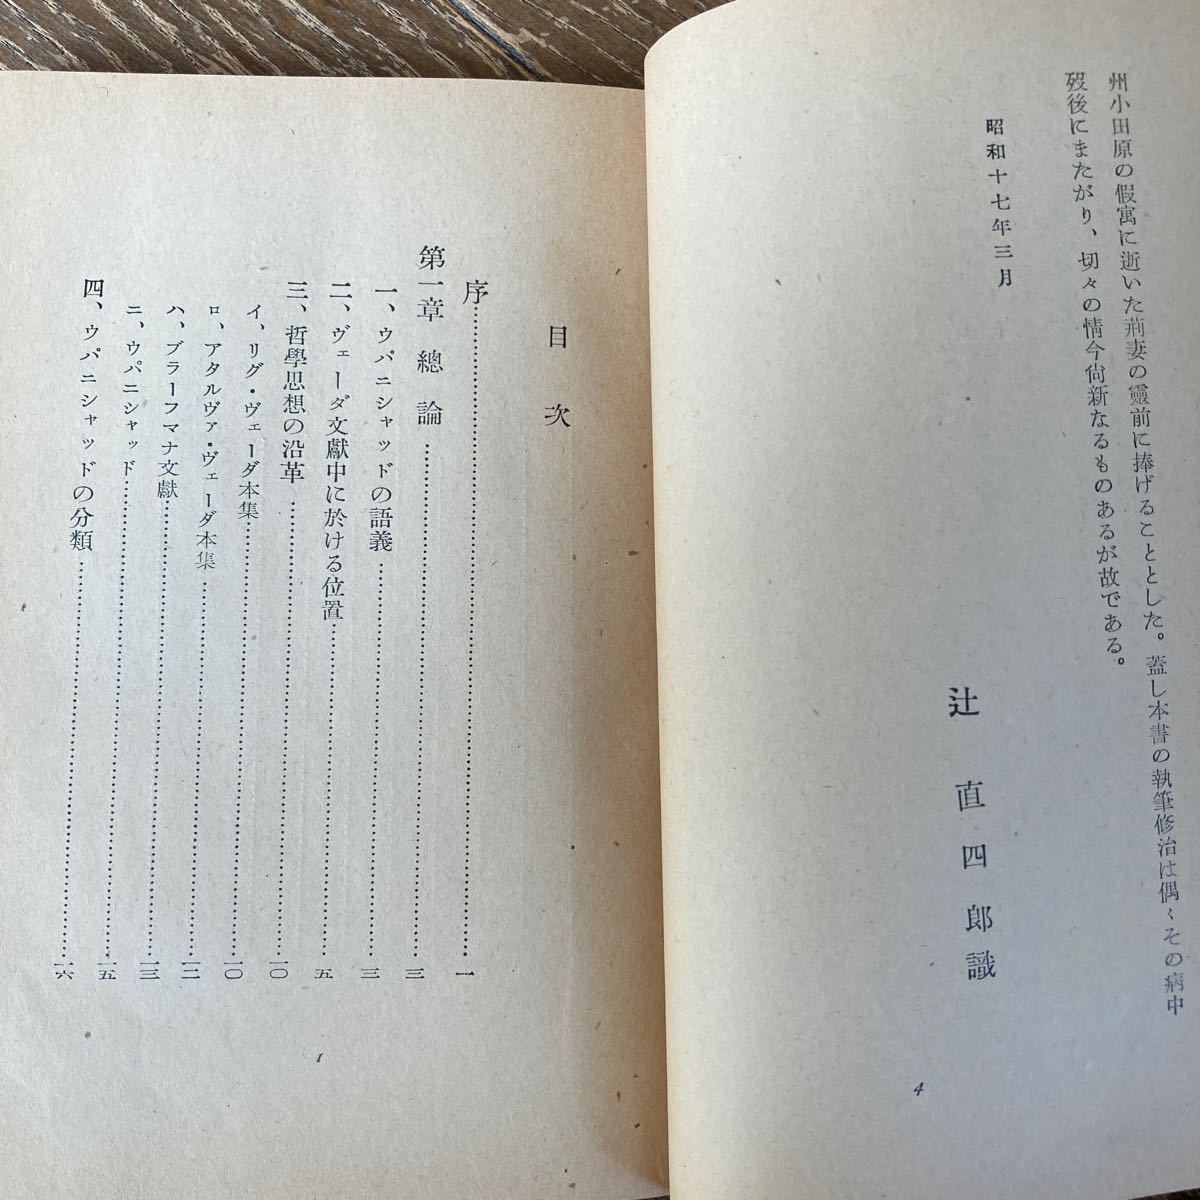 州小田原の假寓に逝いた荊妻の靈前に捧げることとした。蓋し本書の執筆修治は偶〻その病中
歿後にまたがり、切々の情今尙新なるものあるが故である。
昭和十七年三月
辻直四郎識
4
目次
序…………一
第一章 總論…………三
一、ウパニシャッドの語義…………三
二、ヴェーダ文獻中に於ける位置…………五
三、哲學思想の沿革…………一〇
イ、リグ・ヴェーダ本集…………一〇
ロ、アタルヴァ・ヴェーダ本集…………一二
ハ、ブラーフマナ文獻…………一三
ニ、ウパニシャッド…………一五
四、ウパニシャッドの分類…………一六
1